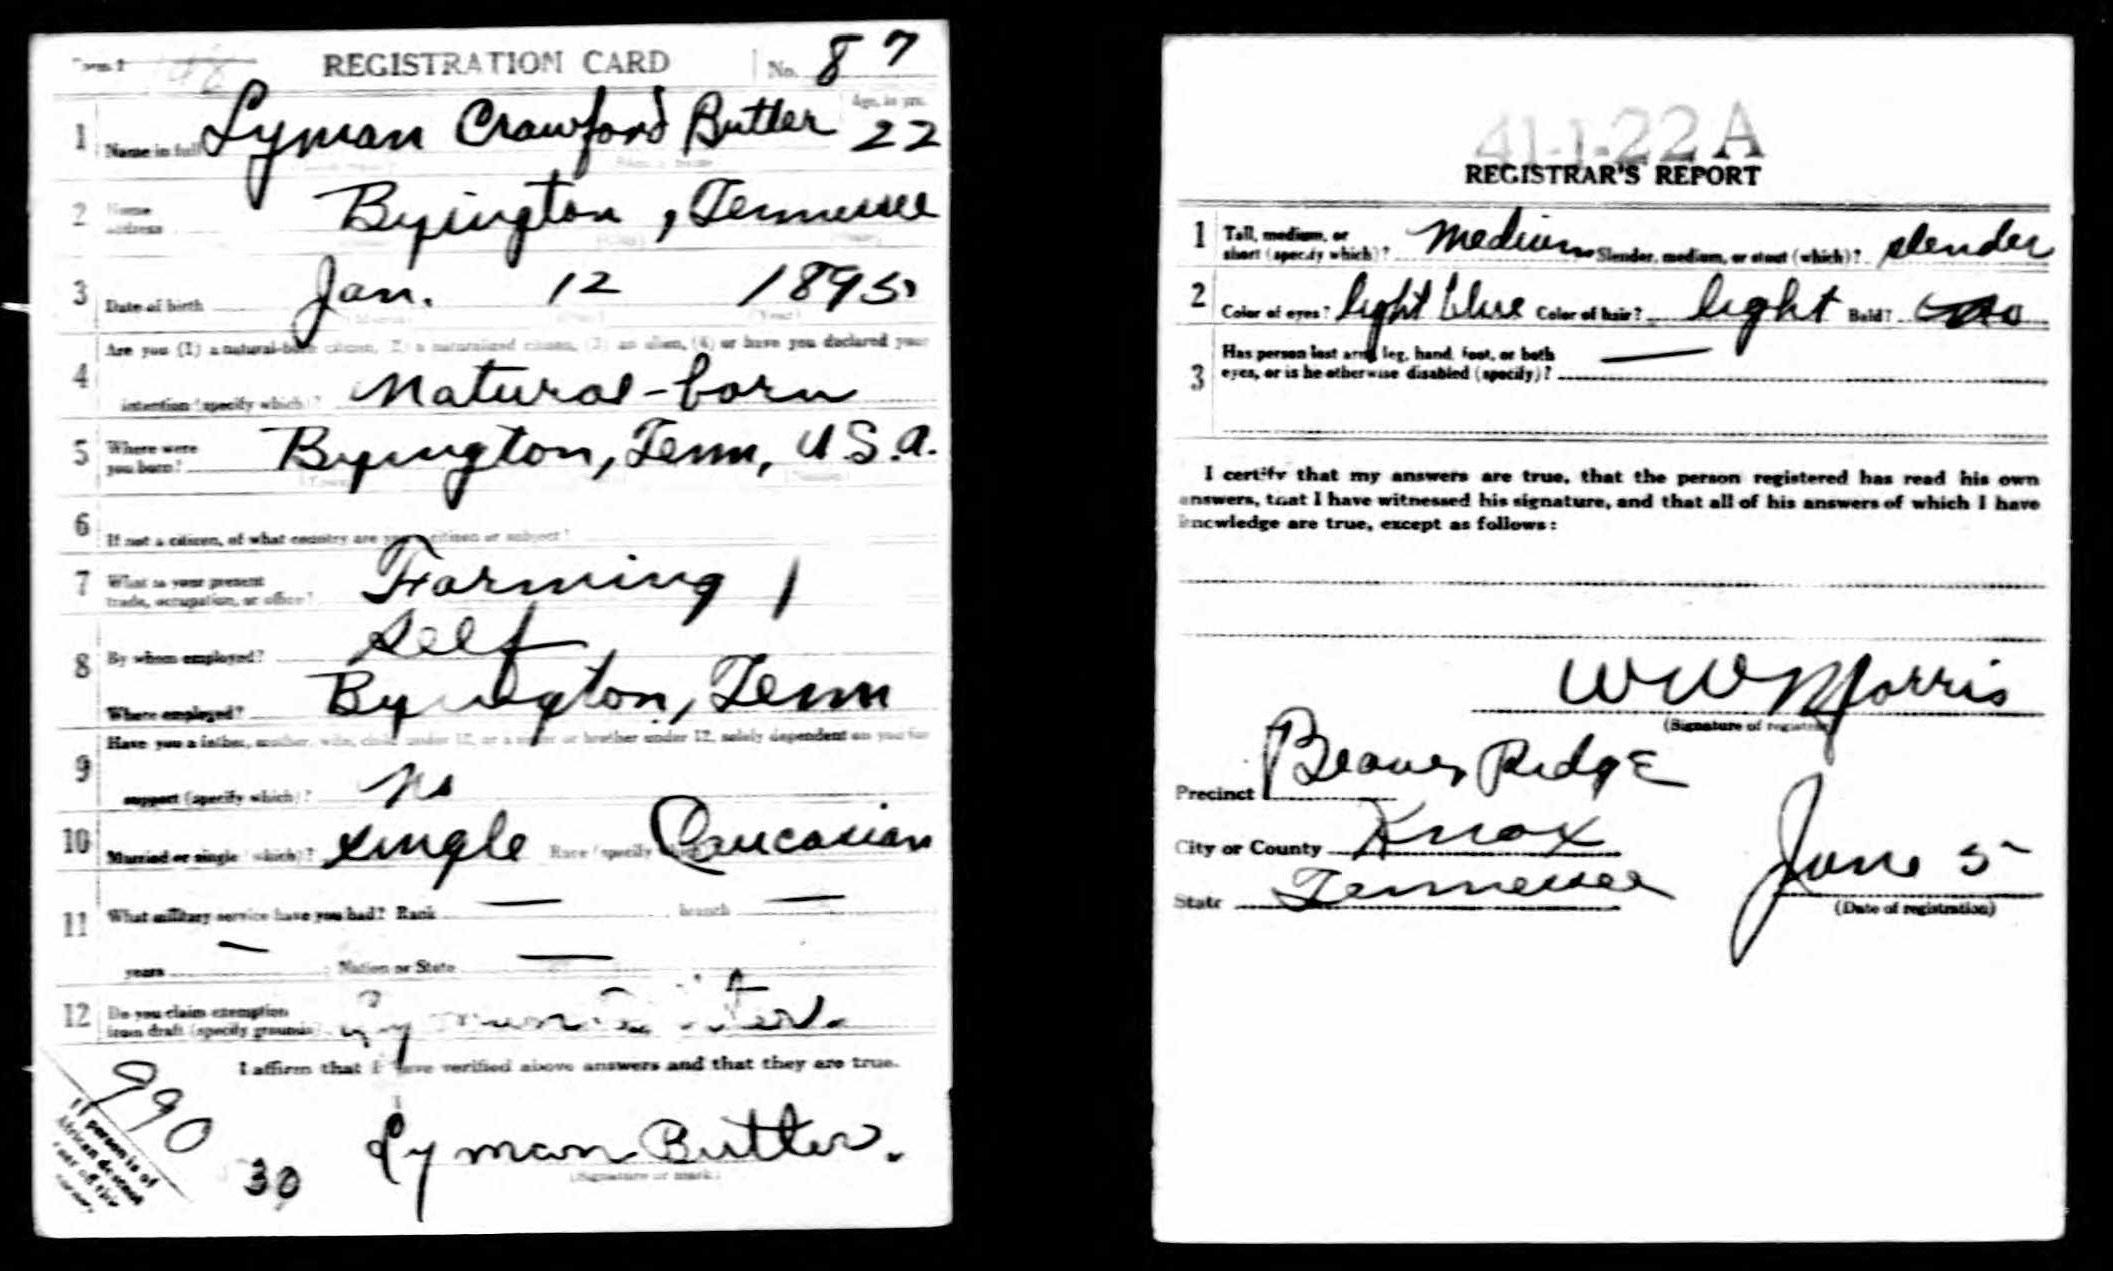 REGISTRATION CARD No. 87
1 Name in full Lyman Crawford Butler Age, in yrs. 22
2 Home address Byington, Tennessee
3 Date of birth Jan. 12 1895
Are you (1) a natural-born citizen, (2) a naturalized citizen, (3) an alien, (4) or have you declared your
4 intention (specify which)? Natural-born
5 Where were you born? Byington, Tenn, U.S.A.
6 If not a citizen, of what country are you a citizen or subject?
7 What is your present trade, occupation, or office? Farming 1
8 By whom employed? Self
Where employed? Byington, Tenn
Have you a father, mother, wife, child under 12, or a sister or brother under 12, solely dependent on you for
9 support (specify which)? No
10 Married or single (which)? single Race (specify which)? Caucasian
11 What military service have you had? Rank — branch —
years — ; Nation or State —
12 Do you claim exemption from draft (specify grounds)?
I affirm that I have verified above answers and that they are true.
Lyman Butler.
(Signature or mark)
990
If person is of
African descent
tear off this
corner.
39
41-1-22 A
REGISTRAR'S REPORT
1 Tall, medium, or short (specify which)? medium Slender, medium, or stout (which)? slender
2 Color of eyes? light blue Color of hair? light Bald? no
3 Has person lost arm, leg, hand, foot, or both
eyes, or is he otherwise disabled (specify)? —
I certify that my answers are true, that the person registered has read his own
answers, that I have witnessed his signature, and that all of his answers of which I have
knowledge are true, except as follows:
W W Morris
(Signature of registrar)
Precinct Beaver Ridge
City or County Knox
State Tennessee
June 5
(Date of registration)